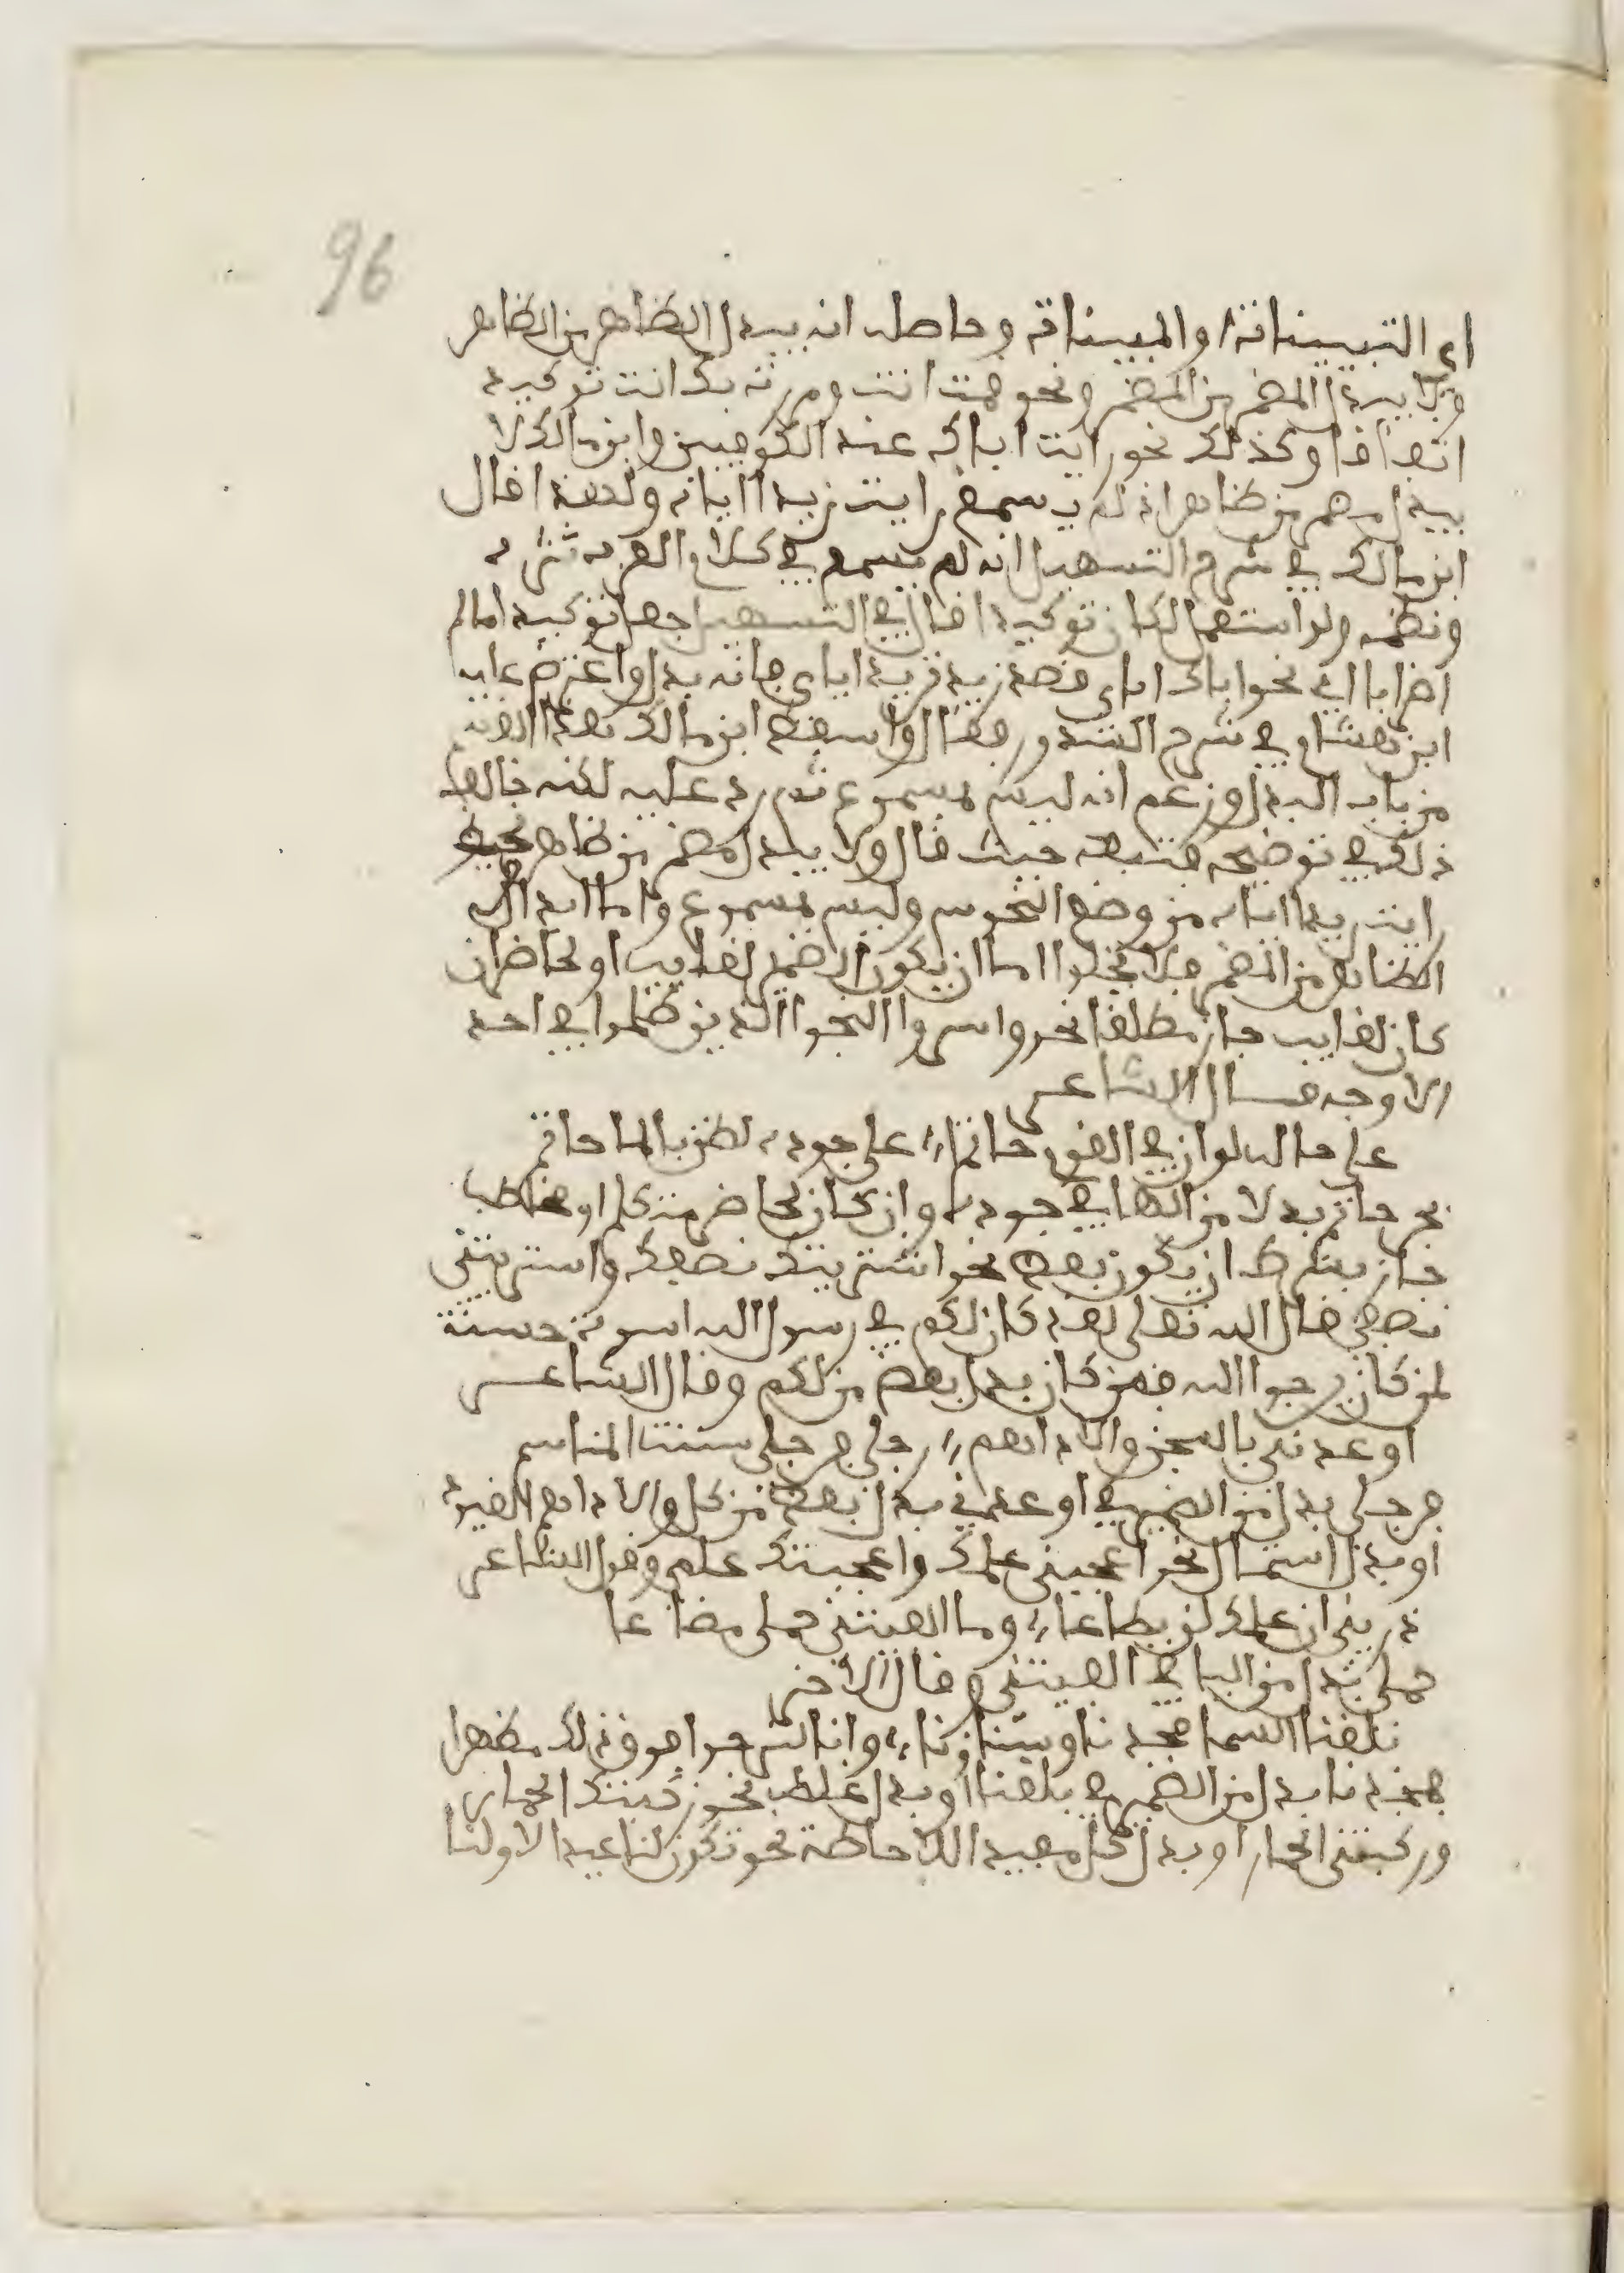 96
اي التبيينات او المبينات وحاصله انه يبدل الظاهر من الظاهر
ولا يبدل المضمر من المضمر ونحو قمت انت ومررت بك انت توكيد
اتفاقا وكذلك نحو رايت اياك عند الكوفيين وابن مالك لا
يبدل مضمر من ظاهر اذ لم يسمع رايت زيدا اياه ولهذا قال
ابن مالك في شرح التسهيل انه لم يسمع في كلام العرب نثره
ونظمه ولو استعمل لكان توكيدا قال في التسهيل جعله توكيدا ما لم
ابن هشام في شرح الشذور فقال واسقط ابن مالك هذا القسم
من باب البدل وزعم انه ليس بمسموع ثم رد عليه لكنه خالف
ذلك في توضيحه فتبعه حيث قال ولا يبدل مضمر من ظاهر نحو
رايت زيدا اياه من وضع النحويين وليس بمسموع واما ابدال
الظاهر من المضمر فلا يخلوا اما ان يكون الضمير لغايب او لحاضر ان
كان لغايب جاز مطلقا نحو واسروا النجوا الذين ظلموا في احد
الاوجه قال الشاعر
على حاله لو ان في القوم حاتما على جوده لضن بالما حاتم
بجر حاتم بدلا من الها في جوده وان كان لحاضر متكلم او مخاطب
جاز بشرط ان يكون بعض نحو اشتريتك نصفك واشتريتني
نصفي قال الله تعلى لقد كان لكم في رسول الله اسوة حسنة
لمن كان يرجوا الله فمن كان بدل بعض من لكم وقال الشاعر
اوعدني بالسجن والاداهم رجلي فرجلي شثنة المناسم
فرجلي بدل من الضمير في اوعدني بدل بعض من كل والاداهم القيود
او بدل اشتمال نحو اعجبني علمك واعجبتك علمي وقول الشاعر
ذريني ان علمك لن يطاعا وما الفيتني حملي مضاعا
حملي بدل من اليا في الفيتني وقال الاخر
بلغنا السما مجدنا وسناؤنا وانا لنرجوا فوق ذلك مظهرا
فمجدنا بدل من الضمير في بلغنا او بدل غلط نحو ركبتك الحمار
وركبتني الحمار او بدل كل مفيد الاحاطة نحو تكون لنا عيدا لاولنا